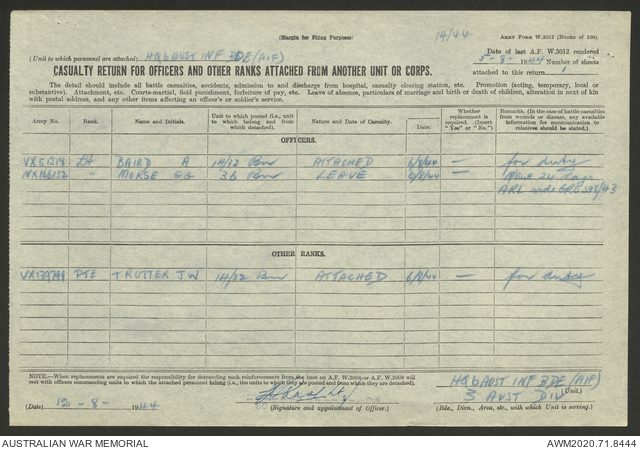 (Margin for Filing Purposes)
14/44
ARMY FORM W.3012 (Books of 100).
(Unit to which personnel are attached) HQ 6 AUST INF BDE (AIF)
Date of last A.F. W.3012 rendered
5-8-1944 Number of sheets
attached to this return 1
CASUALTY RETURN FOR OFFICERS AND OTHER RANKS ATTACHED FROM ANOTHER UNIT OR CORPS.
The detail should include all battle casualties, accidents, admission to and discharge from hospital, casualty clearing station, etc. Promotion (acting, temporary, local or
substantive). Attachment, etc. Courts-martial, field punishment, forfeiture of pay, etc. Leave of absence, particulars of marriage and birth or death of children, alteration in next of kin
with postal address, and any other items affecting an officer's or soldier's service.
Army No. Rank. Name and Initials. Unit to which posted (i.e., unit to which belong and from which detached). Nature and Date of Casualty. Date. Whether replacement is required. (Insert "Yes" or "No.") Remarks. (In the case of battle casualties from wounds or disease, any available information for communication to relatives should be stated.)
OFFICERS.
Lt BAIRD A 14/32 Bn ATTACHED 6/8/44 — for duty
NX166132 " MORSE GG 36 Bn LEAVE 6/8/44 — 24 days
ARL vide GRO /43
OTHER RANKS.
VX139799 PTE TROTTER JW 14/32 Bn ATTACHED — for duty
NOTE.—When replacements are required the responsibility for demanding such reinforcements from the base on A.F. W.3008 or A.F. W.3009 will
rest with officers commanding units to which the attached personnel belong (i.e., the units to which they are posted and from which they are detached).
HQ 6 AUST INF BDE (AIF)
(Unit.)
(Date) 12-8-1944
(Signature and appointment of Officer.)
3 AUST DIV
(Bde., Divn., Area, etc., with which Unit is serving.)
AUSTRALIAN WAR MEMORIAL
AWM2020.71.8444